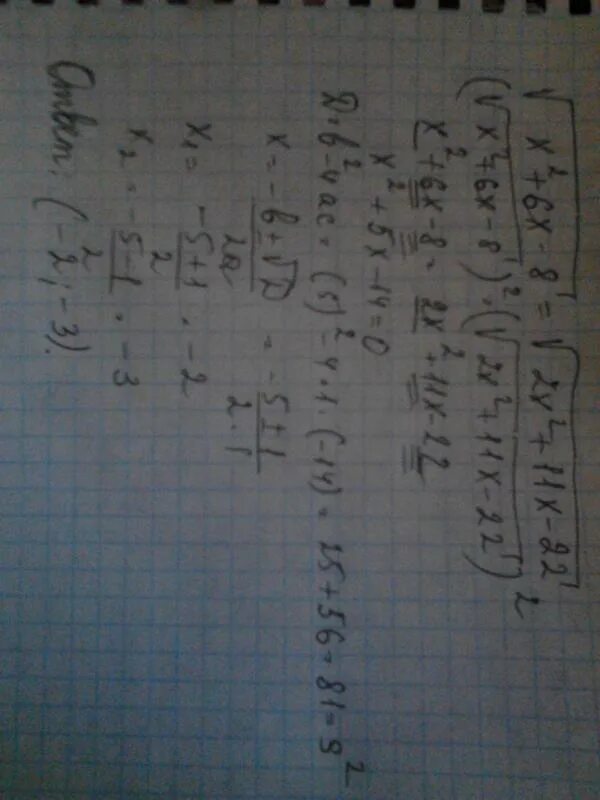 √x²+6x-8 = √2x²+11x-22
(√x²+6x-8)² = (√2x²+11x-22)²
x²+6x-8 = 2x²+11x-22
x²+5x-14=0
D=b²-4ac = (5)²-4·1·(-14) = 25+56=81=9²
x = -b±√D / 2a = -5±1 / 2·1
x₁ = -5+1 / 2 = -2
x₂ = -5-1 / 2 = -3
Ответ: (-2; -3).